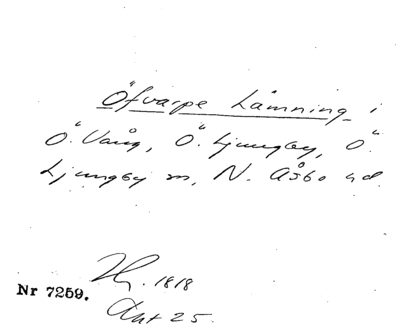 Öfvarpe Lämning i
Ö. Vång, Ö. Ljungby, Ö.
Ljungby sn, N. Åsbo hd.
1818
Nr 7259.
Akt 25.